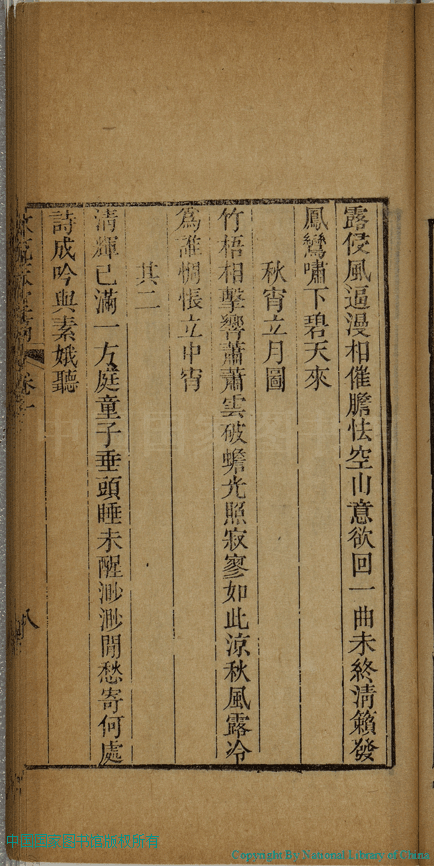 露侵風逼漫相催膽怯空山意欲回一曲未終清籟發
鳳鸞嘯下碧天來
秋宵立月圖
竹梧相擊響蕭蕭雲破蟾光照寂寥如此涼秋風露冷
為誰惆悵立中宵
其二
清輝已滿一方庭童子垂頭睡未醒渺渺閒愁寄何處
詩成吟與素娥聽
八
Copyright By National Library of China